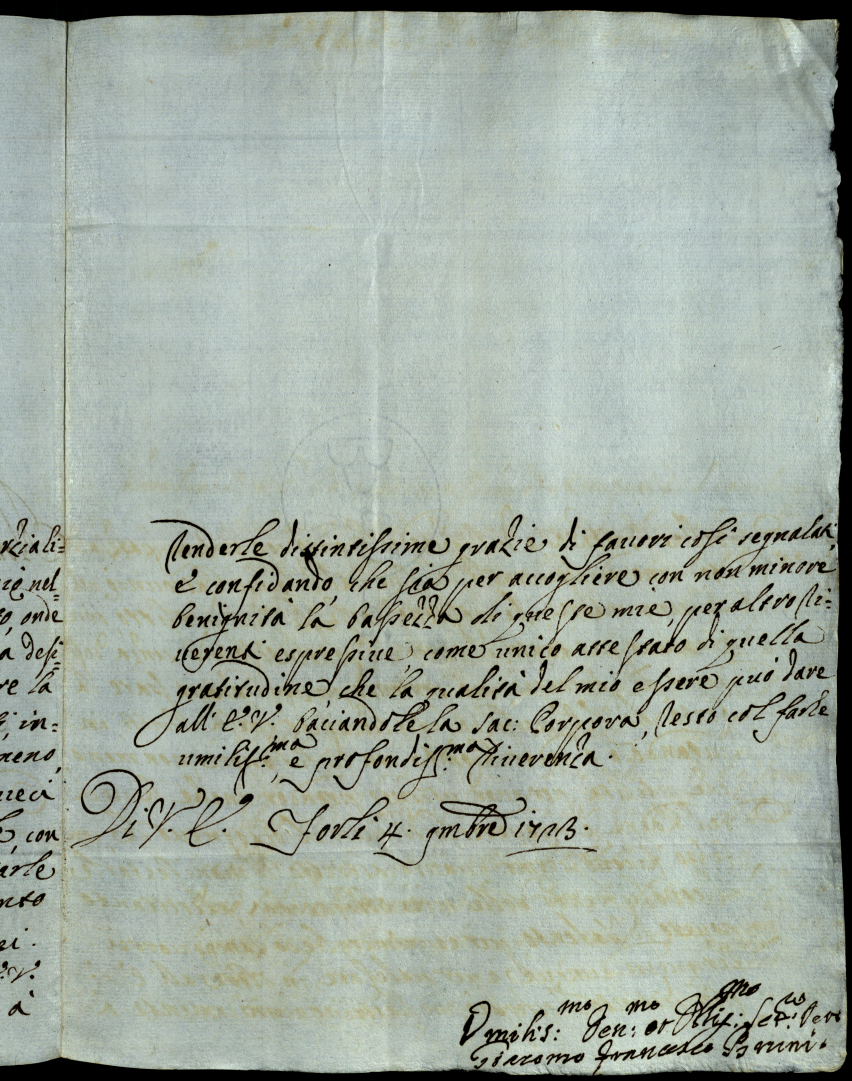 rziali=
nel=
onde
à desi=
re la
in=
meno,
con
arle
nto
à
renderle distintissime grazie di favori così segnalati,
e confidando, che sia per accogliere con non minore
benignità la bassezza di queste mie, per altro ri=
verenti espressive, come unico attestato di quella
gratitudine, che la qualità del mio essere può dare
all' E. V. baciandole la Sac: Porpora, resto col farle
umiliss.ma, e profondiss.ma riverenza.
Di V. E. Forlì 4. 9mbre 1723.
Vmilis:mo Den:mo et Obli:gmo Ser.re
Giacomo Francesco Bruni.